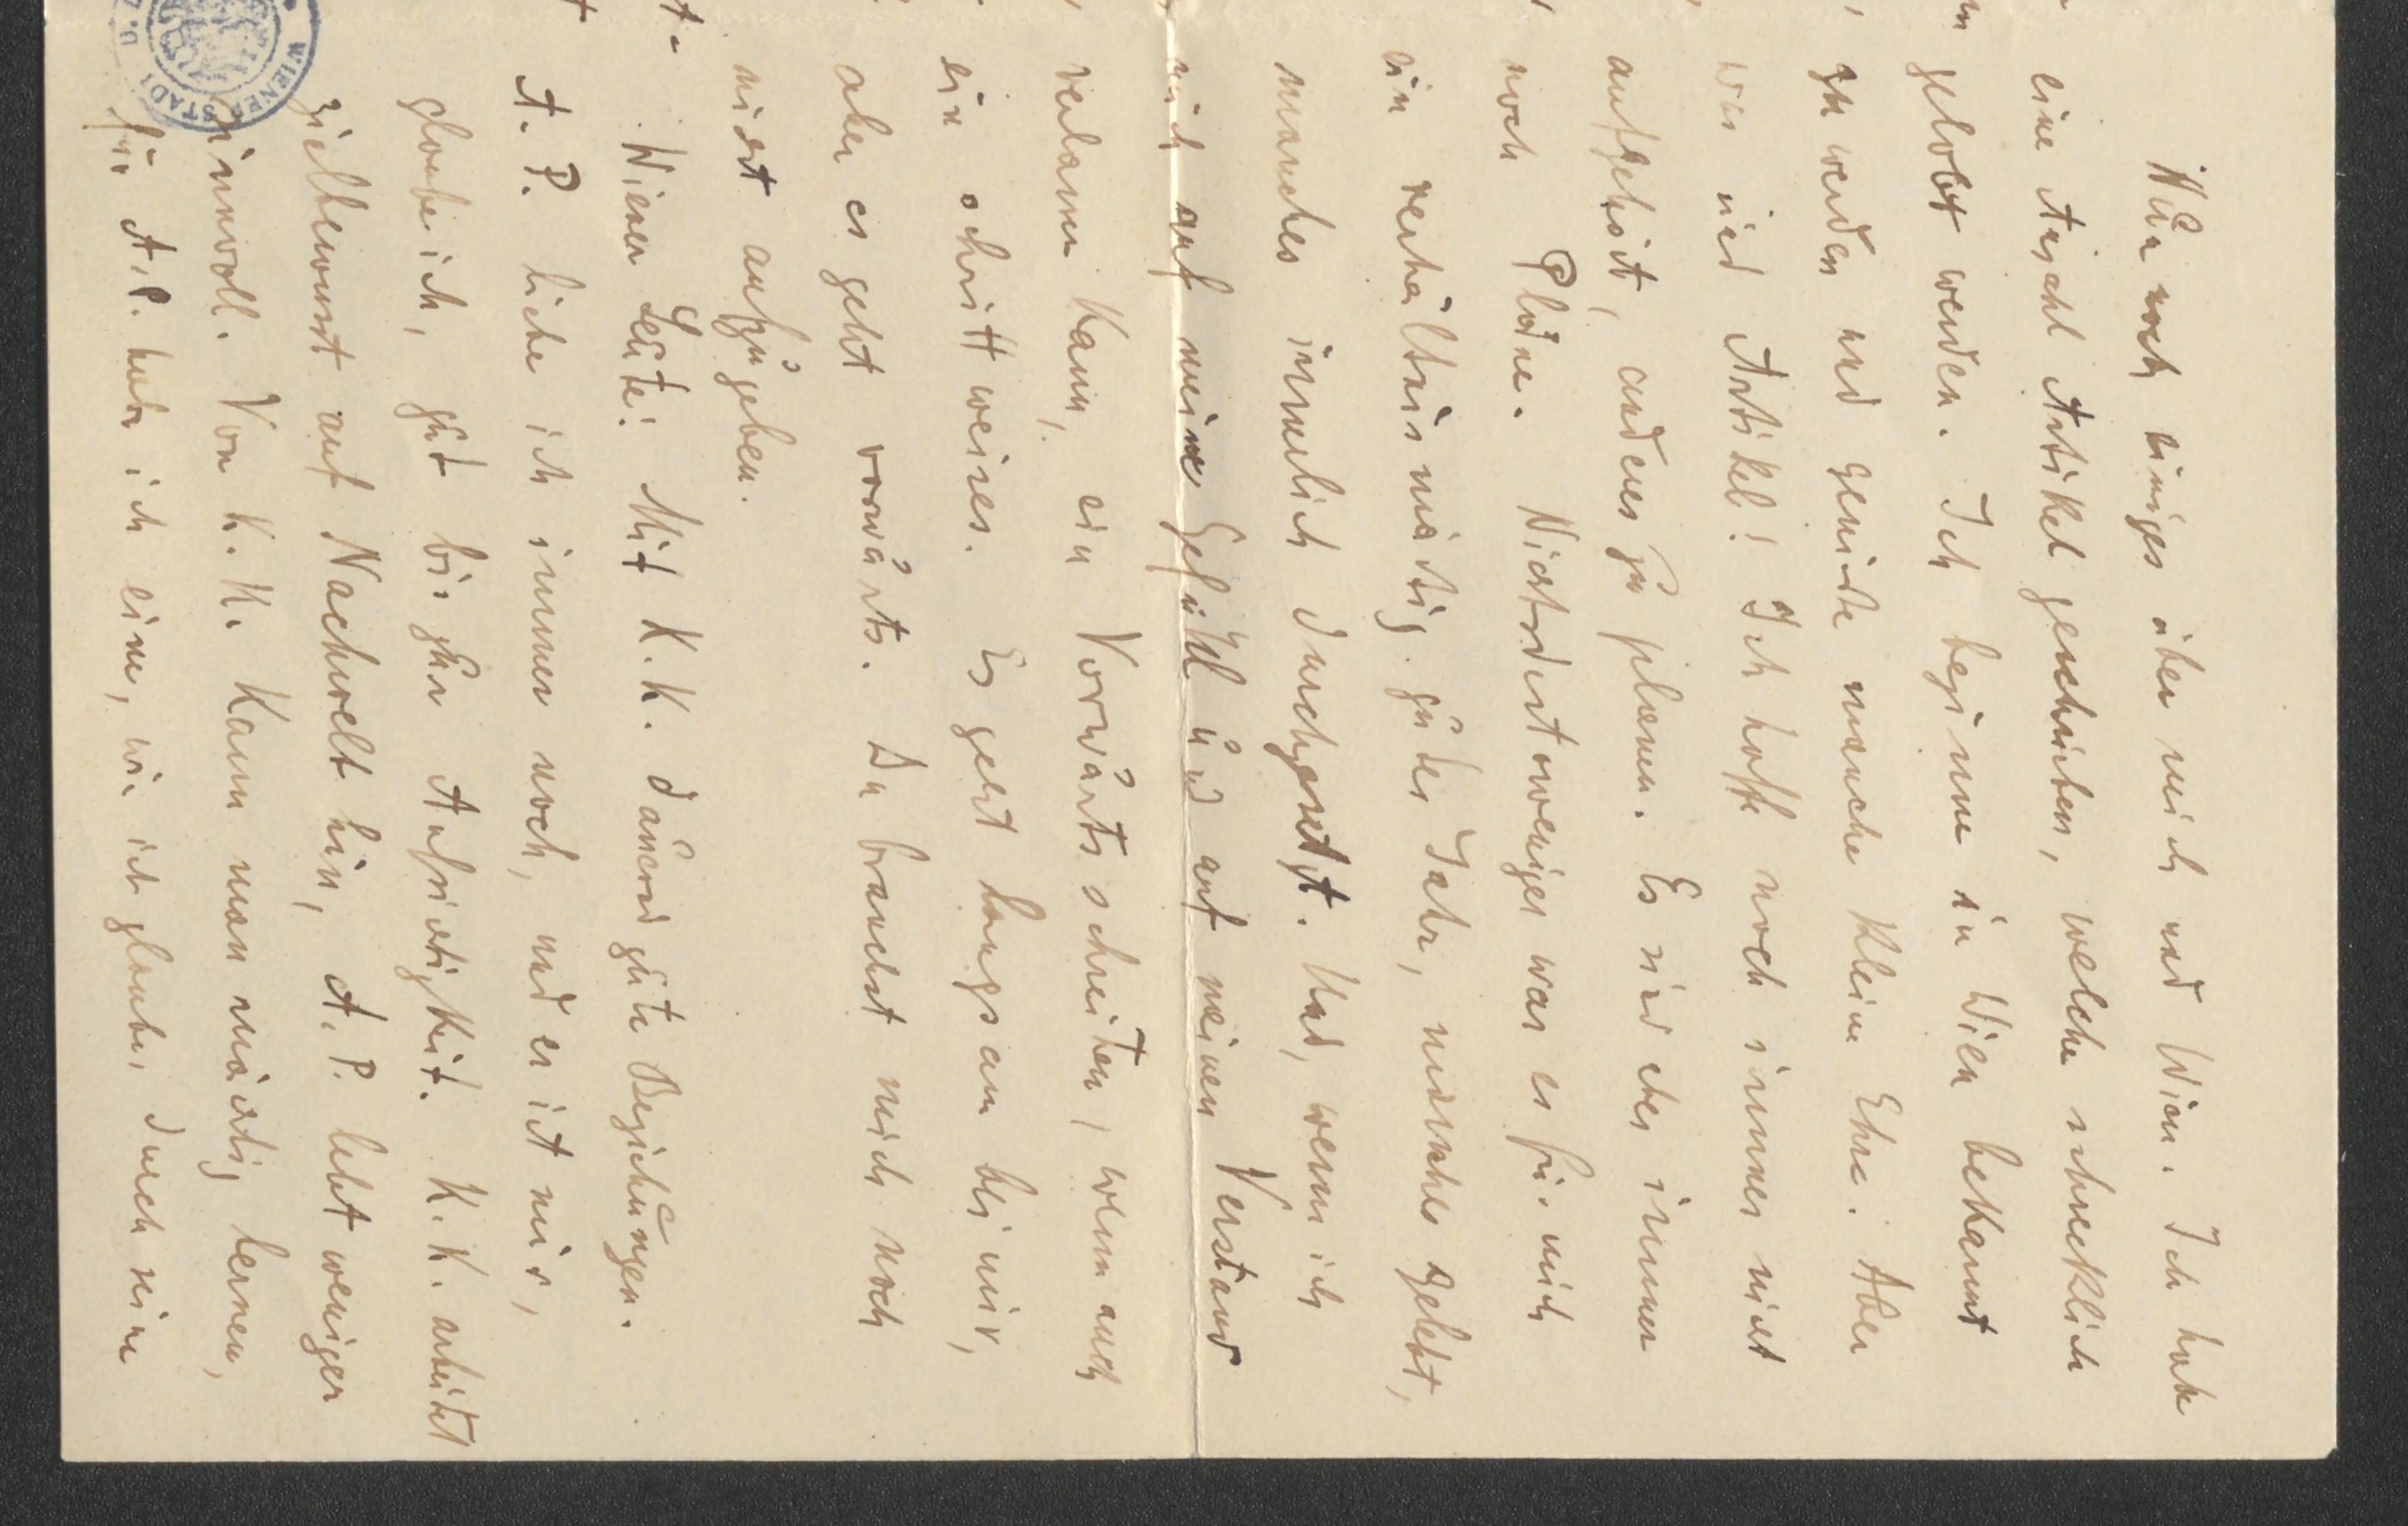 Nur noch einiges über mich und Wien. Ich habe
eine Anzahl Artikel geschrieben, welche schrecklich
gelobt werden. Ich beginne in Wien bekannt
zu werden und genieße manche kleine Ehre. Aber
was sind Artikel! Ich hoffe noch immer nicht
aufgehört, anderes zu planen. Es sind aber immer
noch Pläne. Nichtsdestoweniger war es für mich
ein verhältnismäßig gutes Jahr, manches gelebt,
manches innerlich durchgesetzt. Und, wenn ich
mich auf meine Gefühl und auf meinen Verstand
verlassen kann, ein Vorwärtsschreiten, wenn auch
ein schrittweises. Es geht langsam bei mir,
aber es geht vorwärts. Du brauchst mich noch
nicht aufzugeben.
Wiener Leute: Mit K. K. dauernd gute Beziehungen.
A. P. liebe ich immer noch, und er ist mir,
glaube ich, gut bis zur Aufrichtigkeit. K. K. arbeitet
zielbewusst auf Nachwelt hin, A. P. lebt weniger
sinnvoll. Von K. K. kann man mächtig lernen,
für A. P. habe ich eine, wie ich glaube, durch seine
WIENER STADT